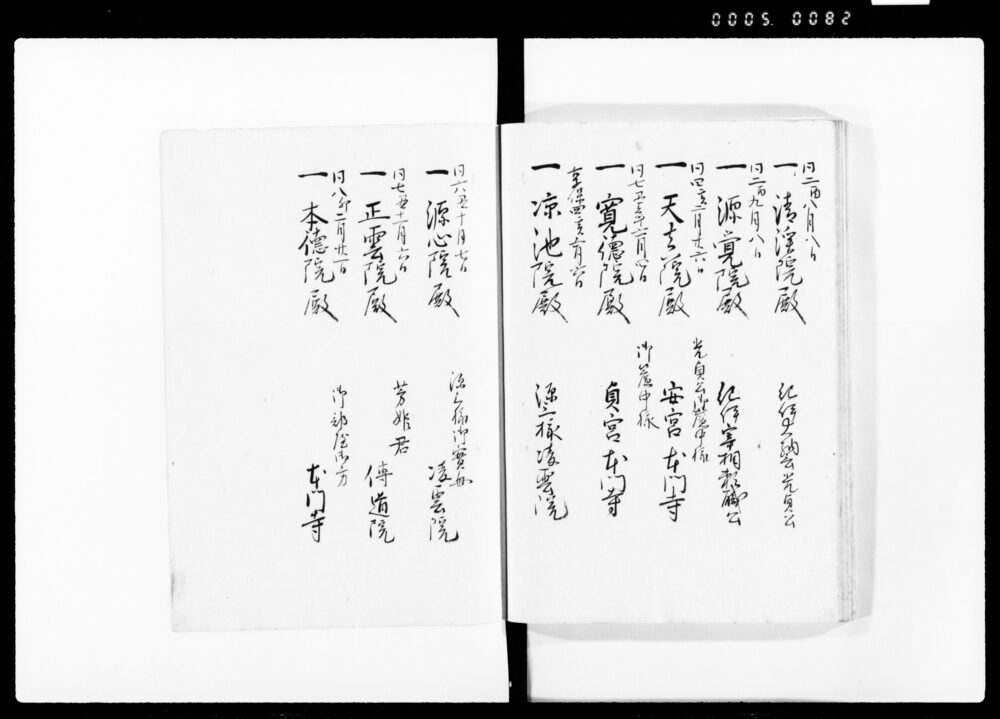 0005. 0082
同二酉八月八日
一 清渓院殿 紀伊大納言光貞公
同二酉九月八日
一 源覚院殿 紀伊宰相頼職公
同四亥二月廿六日 光貞公御簾中様
一 天真院殿 安宮 本門寺
六月四日 御簾中様
一 寛德院殿 貞宮 本門寺
享保四亥六月六日
一 凉池院殿 源三様 凌雲院
同六丑十月七日 源三様御實母
一 源心院殿 凌雲院
十一月六日 芳姫君
一 正雲院殿 傳通院
同八卯二月廿一日 御部屋御方
一 本德院殿 本門寺